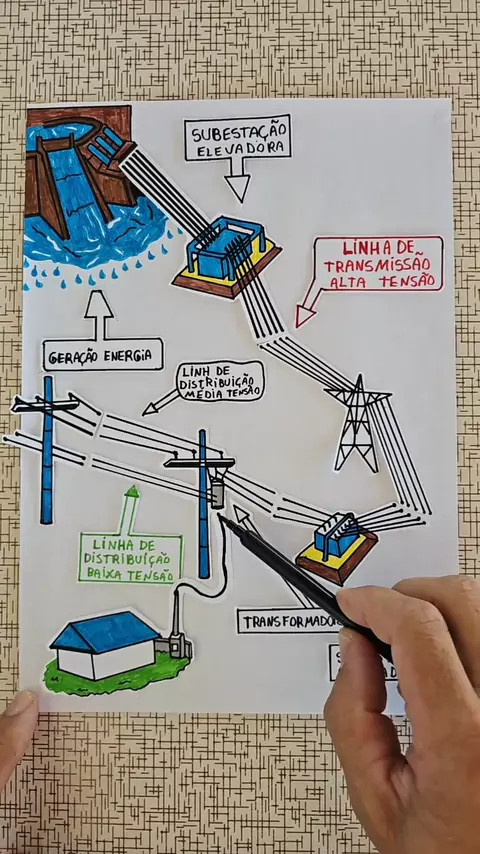 SUBESTAÇÃO
ELEVADORA
LINHA DE
TRANSMISSÃO
ALTA TENSÃO
GERAÇÃO ENERGIA
LINH DE
DISTRIBUIÇÃO
MÉDIA TENSÃO
LINHA DE
DISTRIBUIÇÃO
BAIXA TENSÃO
TRANSFORMADOR